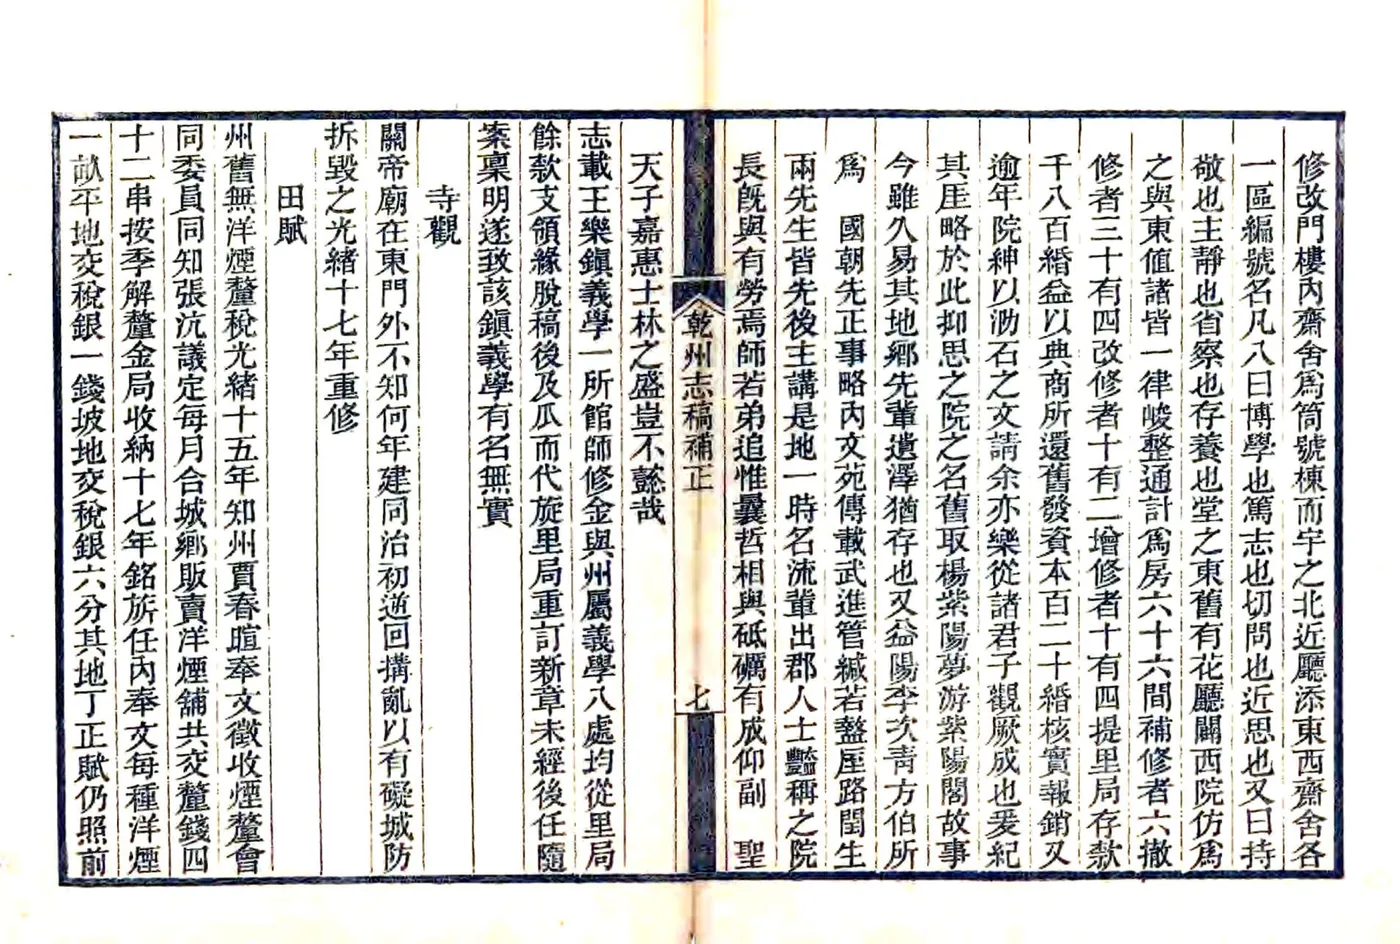 修改門樓內齋舍爲筒號棟而宇之北近廳添東西齋舍各
一區編號名凡八曰博學也篤志也切問也近思也又曰持
敬也主靜也省察也存養也堂之東舊有花廳闢西院仿爲
之與東値諸皆一律峻整通計爲房六十六間補修者六撤
修者三十有四改修者十有二增修者十有四提里局存欵
千八百緡益以典商所還舊發資本百二十緡核實報銷又
逾年院紳以泐石之文請余亦樂從諸君子觀厥成也爰紀
其厓略於此抑思之院之名舊取楊紫陽夢游紫陽閣故事
今雖久易其地鄉先輩遺澤猶存也又益陽李次靑方伯所
爲　國朝先正事略內文苑傳載武進管緘若盩厔路閏生
兩先生皆先後主講是地一時名流輩出郡人士豔稱之院
長旣與有勞焉師若弟追惟曩哲相與砥礪有成仰副　聖
乾州志稿補正
七
天子嘉惠士林之盛豈不懿哉
志載王樂鎭義學一所館師修金與州屬義學八處均從里局
餘欵支領緣脫稿後及瓜而代旋里局重訂新章未經後任隨
案稟明遂致該鎭義學有名無實
寺觀
關帝廟在東門外不知何年建同治初逆回搆亂以有礙城防
拆毀之光緒十七年重修
田賦
州舊無洋煙釐稅光緒十五年知州賈春暄奉文徵收煙釐會
同委員同知張沆議定每月合城鄉販賣洋煙舖共交釐錢四
十二串按季解釐金局收納十七年銘旂任內奉文每種洋煙
一畝平地交稅銀一錢坡地交稅銀六分其地丁正賦仍照前